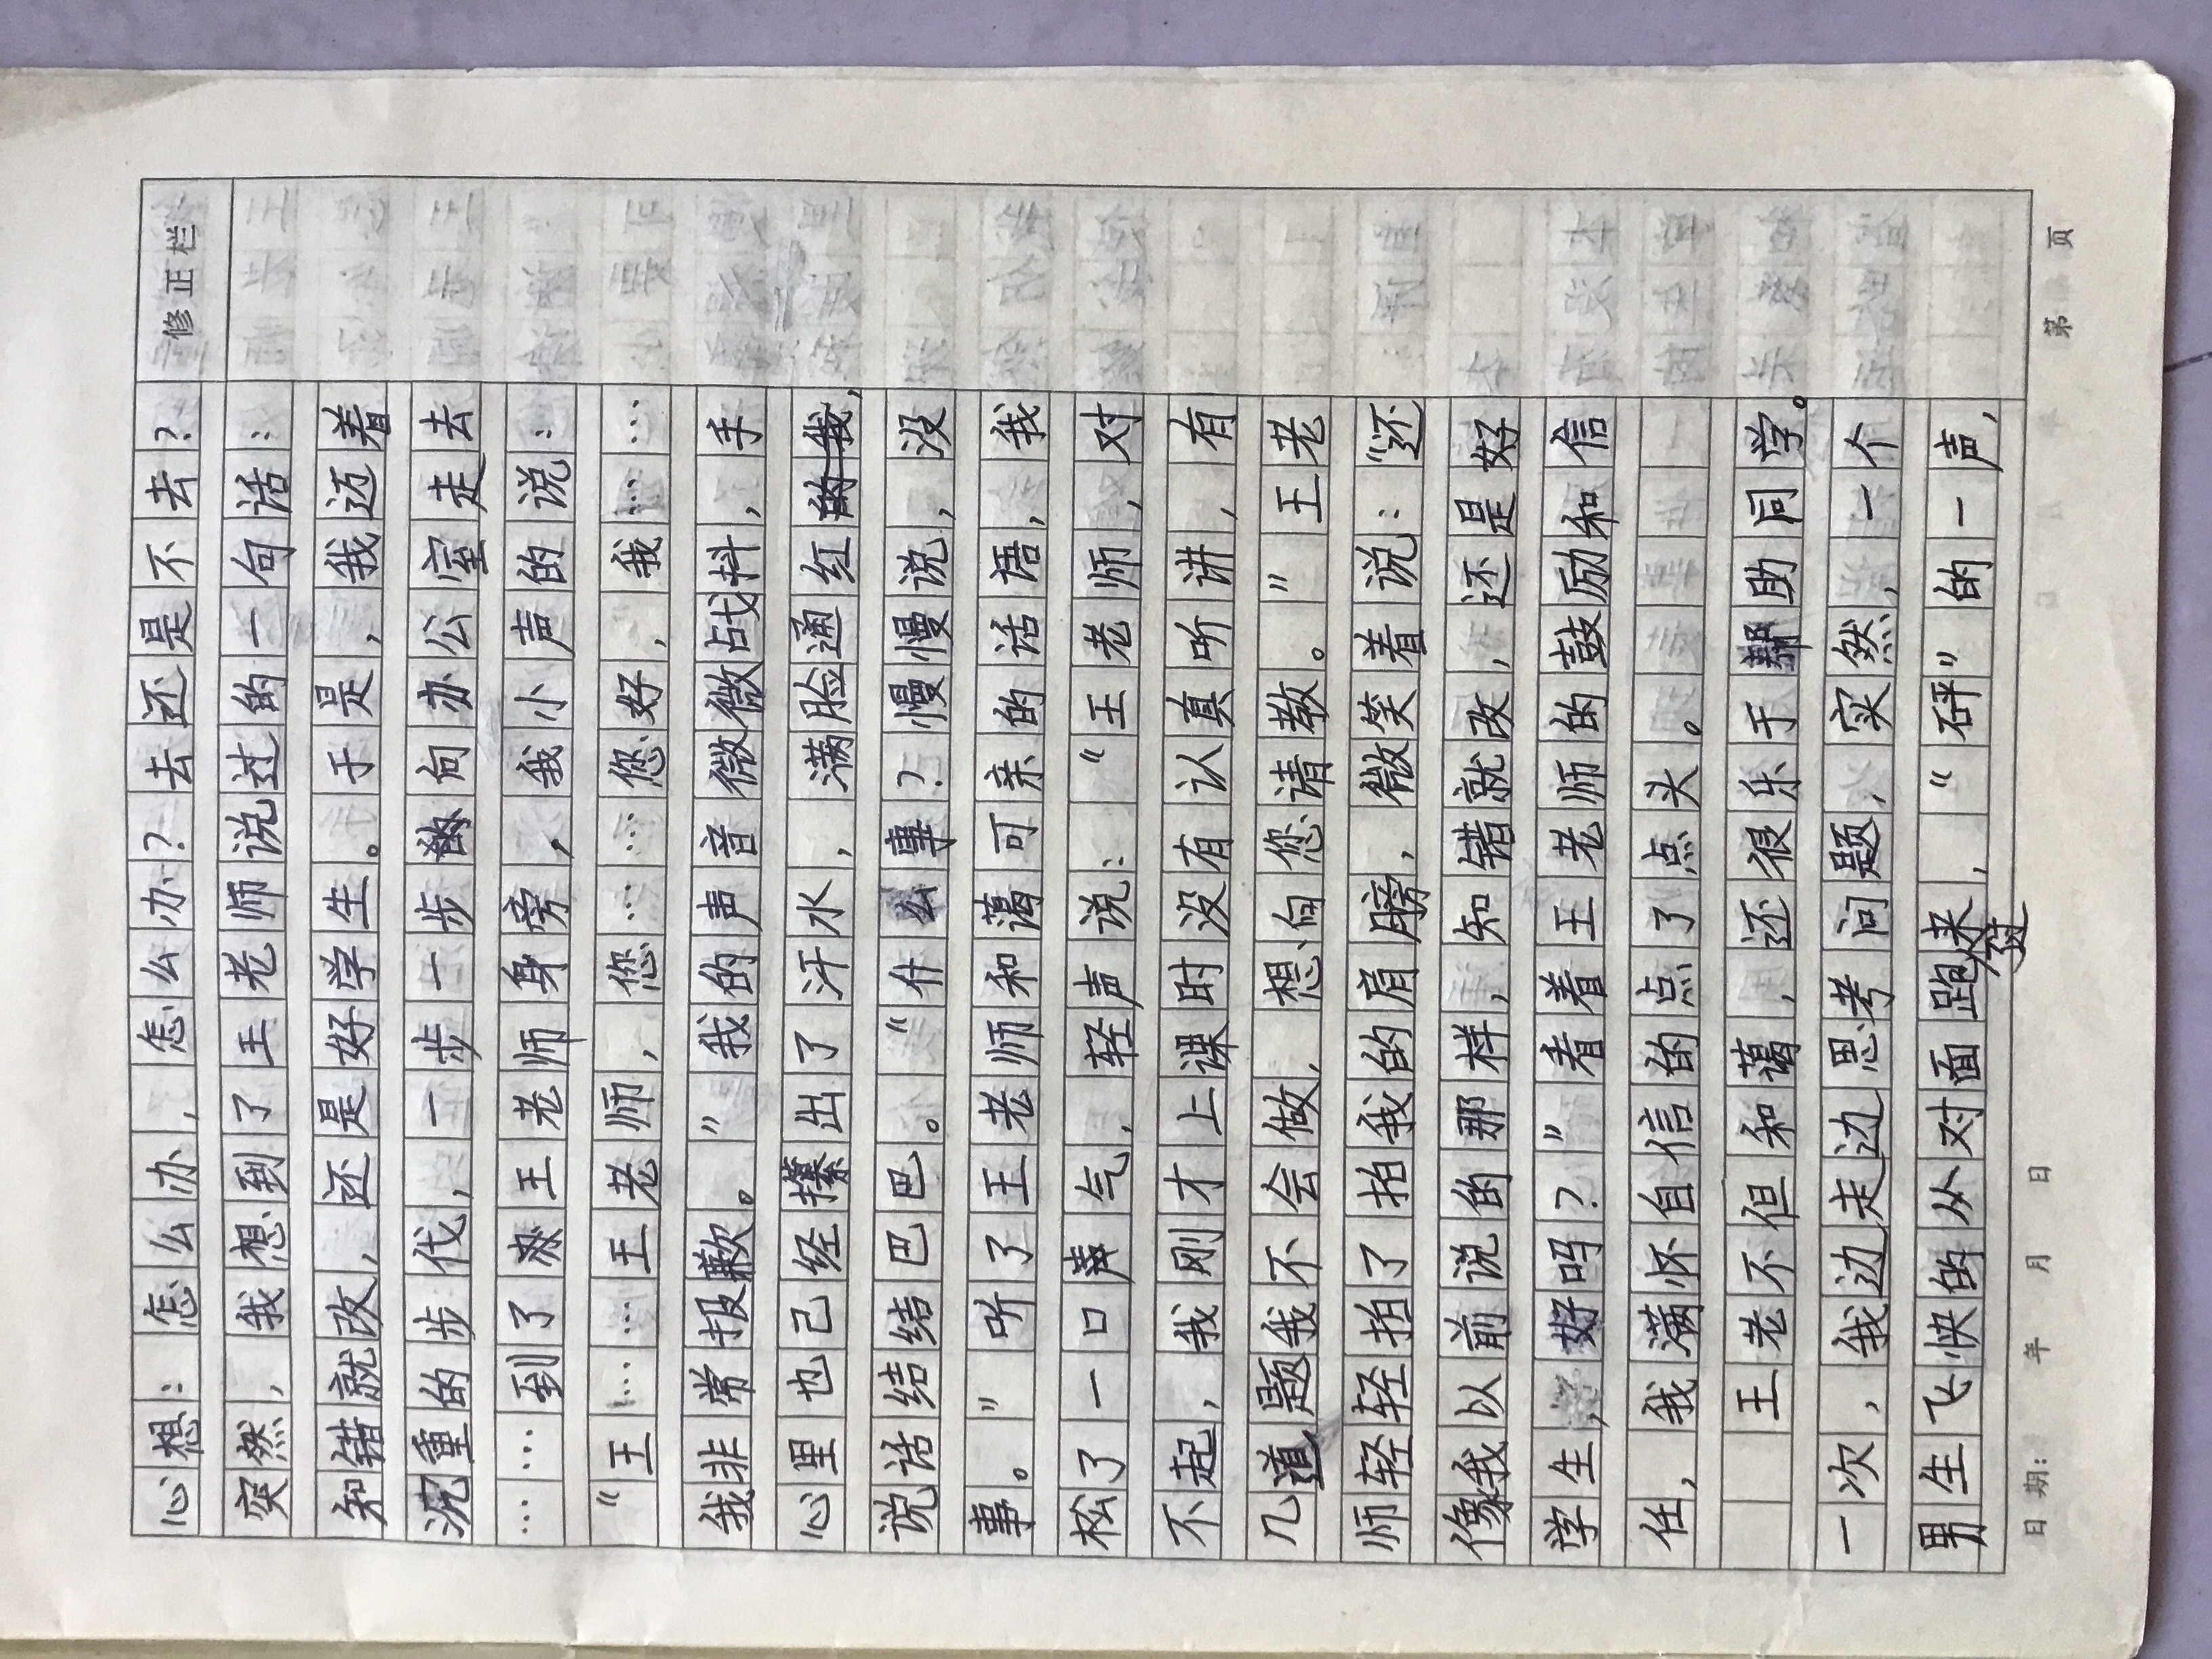 修正栏
心想：怎么办，怎么办？去还是不去？
突然，我想到了王老师说过的一句话：
知错就改，还是好学生。于是，我迈着
沉重的步伐，一步一步的向办公室走去
……到了王老师身旁，我小声的说：
“王……王老师，您……您好，我……
我非常报歉。”我的声音微微战抖，手
心里也已经攥出了汗水，满脸通红的我，
说话结结巴巴。“什么事？慢慢说，没
事。”听了王老师和蔼可亲的话语，我
松了一口气，轻声说：“王老师，对
不起，我刚才上课时没有认真听讲，有
几道题我不会做，想向您请教。”王老
师轻轻拍了拍我的肩膀，微笑着说：“还
像我以前说的那样，知错就改，还是好
学生，好吗？”看着王老师的鼓励和信
任，我满怀自信的点了点头。
王老不但和蔼，还很乐于帮助同学。
一次，我边走边思考问题，突然，一个
男生飞快的从对面跑来，“砰”的一声，
日期： 年 月 日 第 页